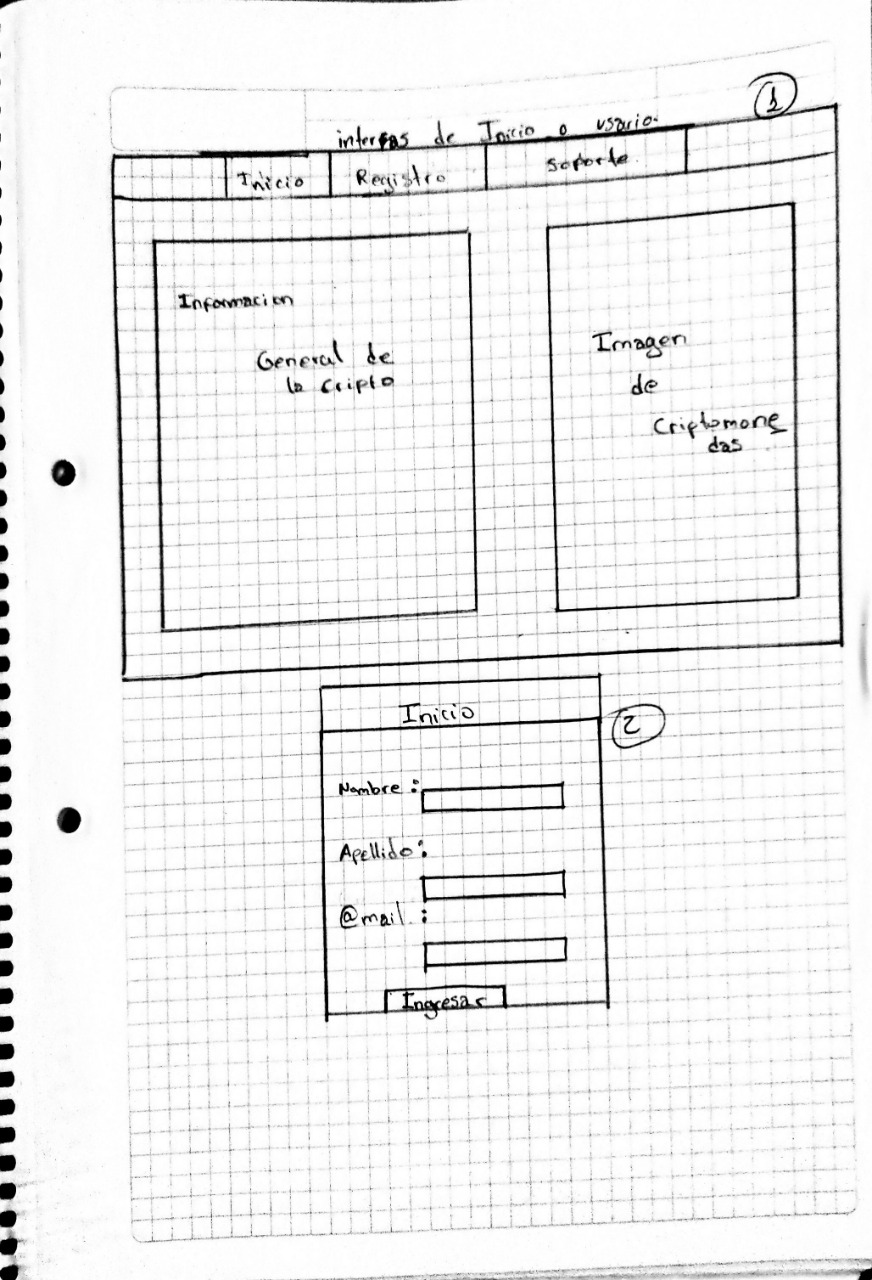 1
interfas de Inicio o usario.
Inicio Registro Soporte
Informacion
General de
la Cripto
Imagen
de
Criptomone
das
Inicio
2
Nombre :
Apellido :
@mail :
Ingresar